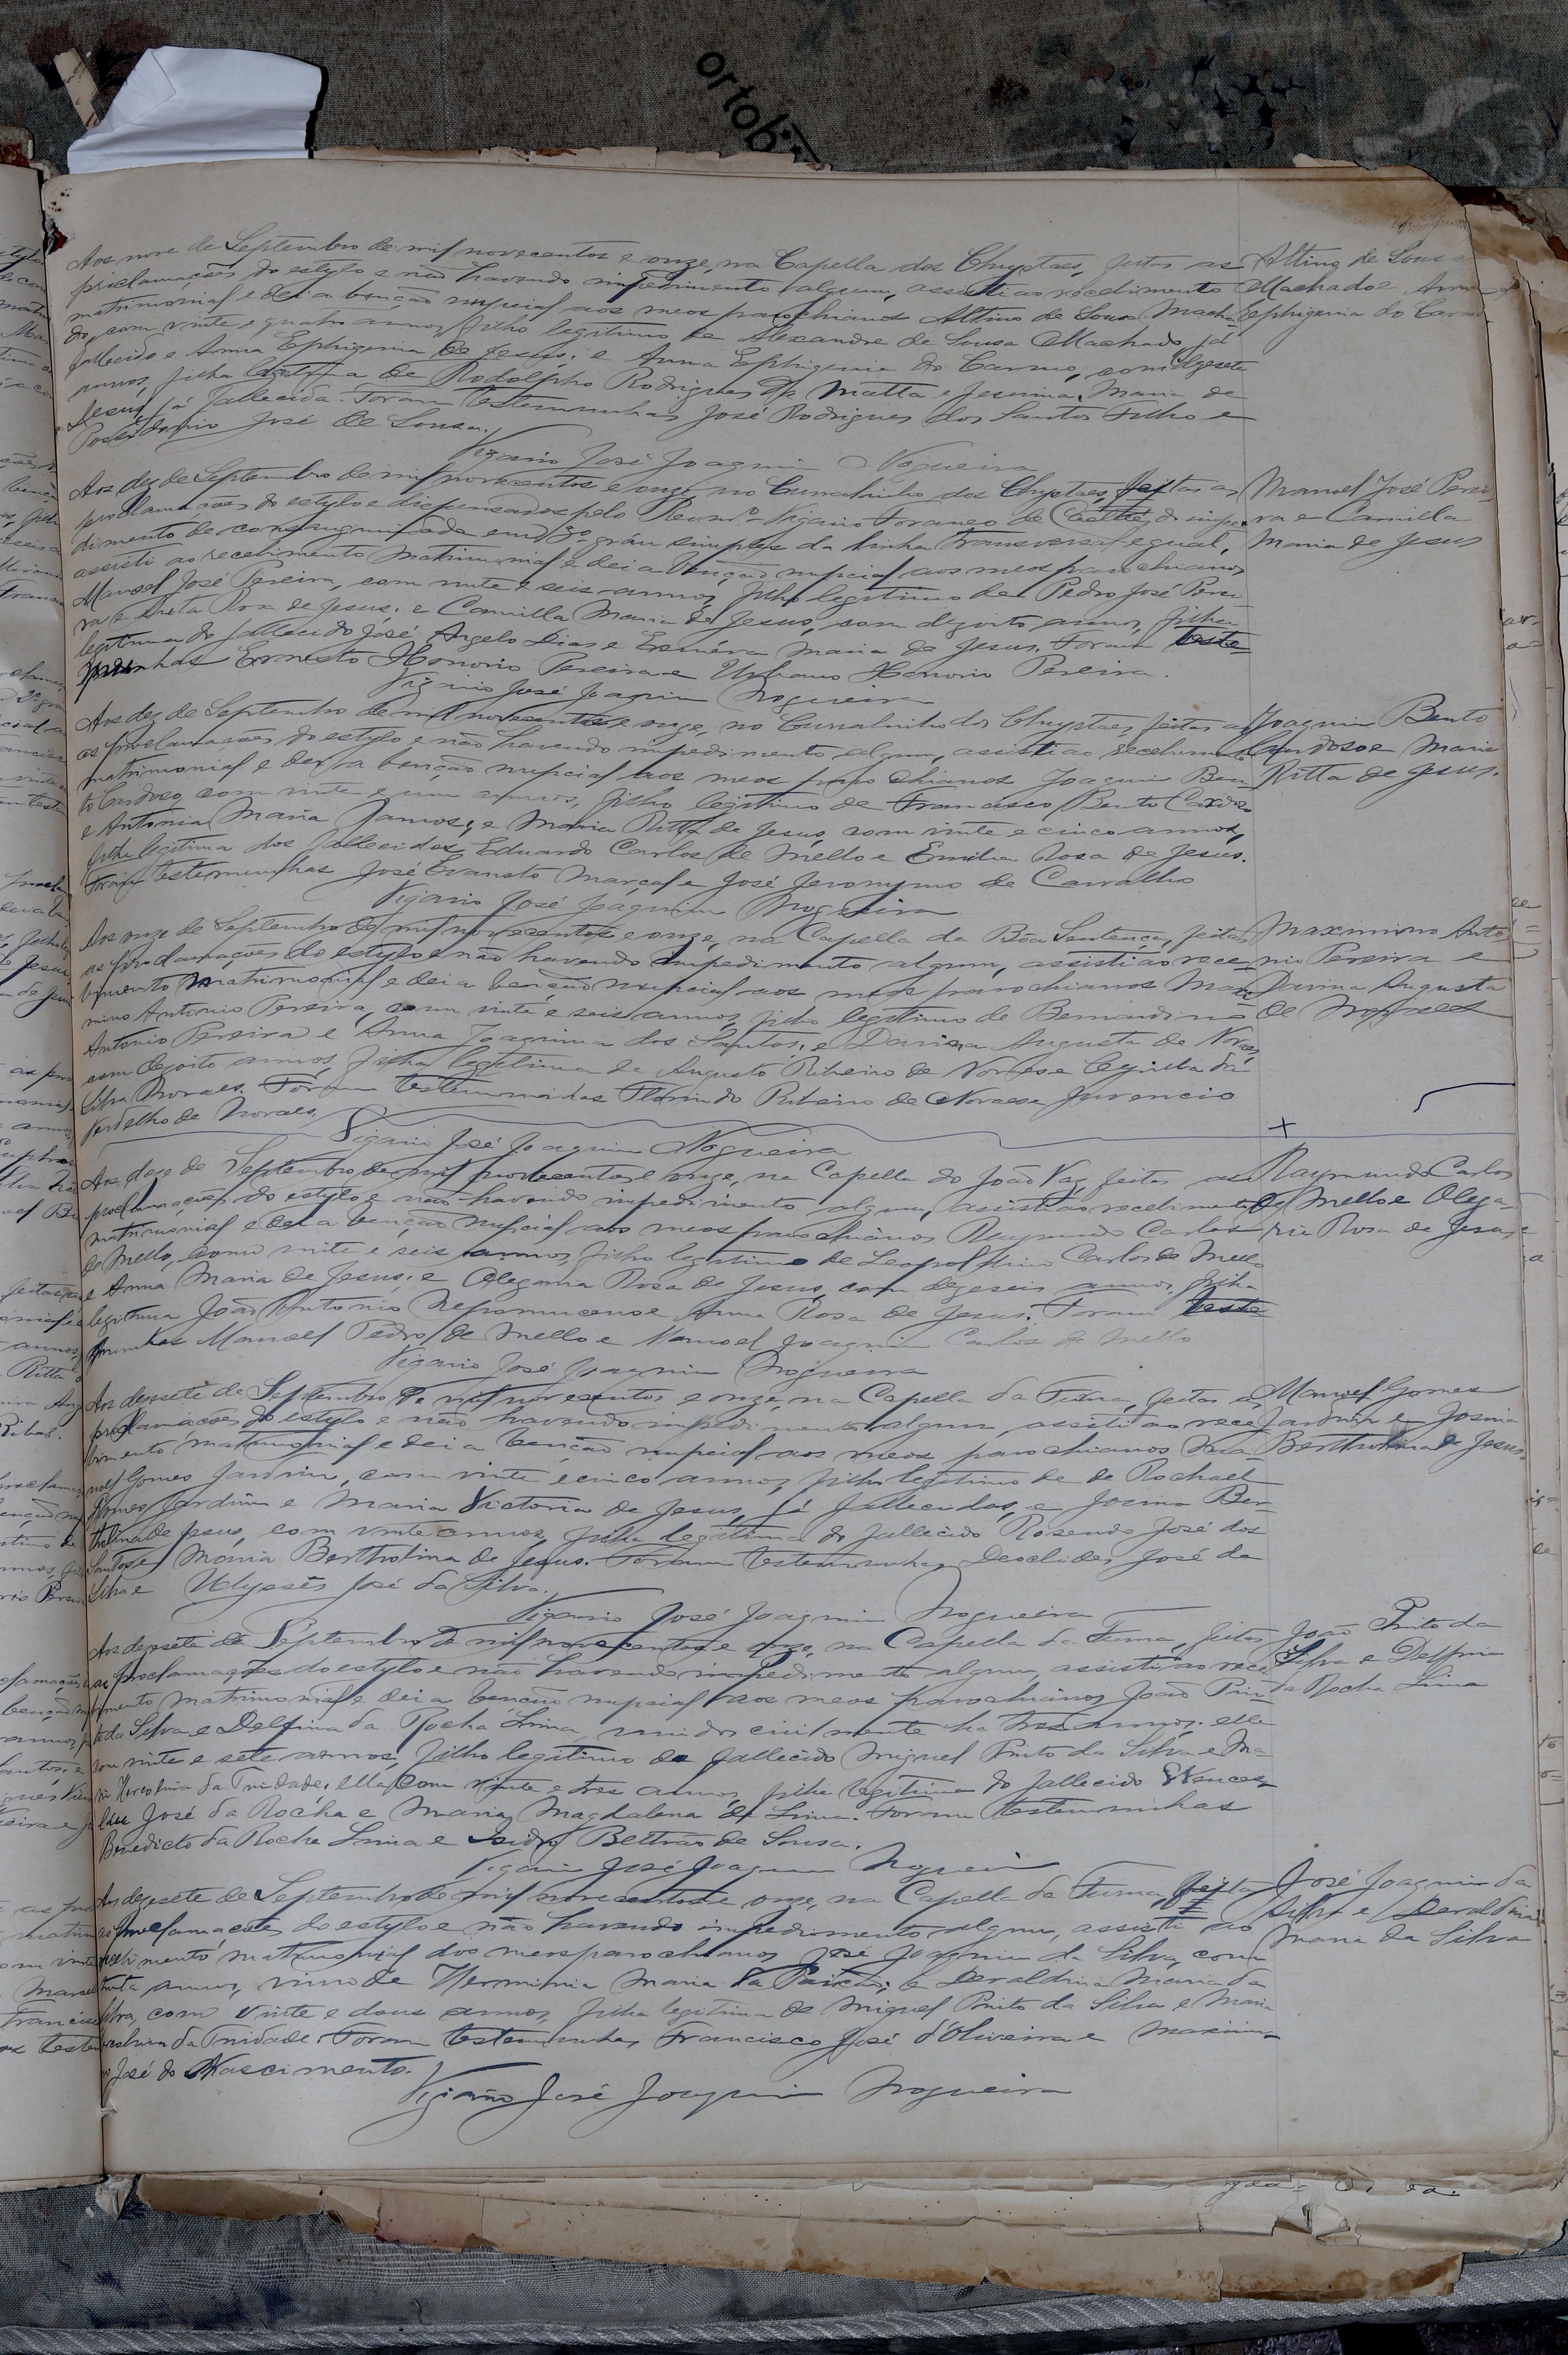 ortobi
Aos nove de Septembro de mil novecentos e onze, na Capella dos Chrystaes, feitas as
proclamações do estylo e não havendo impedimento algum, assisti ao recebimento
matrimonial e dei a benção nupcial aos meos parochianos Altino de Sousa Macha-
do, com vinte e quatro annos, filho legitimo de Alexandre de Sousa Machado, já
fallecido e Anna Ephigenia de Jesus; e Anna Ephigenia do Carmo, com dezesete
annos, filha legitima de Rodolpho Rodrigues da Matta e Jesuina Maria de
Jesus, já fallecida. Foram testemunhas José Rodrigues dos Santos Filho e
José de Sousa.
Vigario José Joaquim Nogueira
Altino de Sousa
Machado e Anna
Ephigenia do Carmo
Aos dez de Septembro de mil novecentos e onze, no Curralinho dos Chrystaes, feitas as
proclamações do estylo e dispensados pelo Revmº Vigario Foraneo de do impe-
dimento de consanguinidade em 3º gráu simples da linha transversal egual,
assisti ao recebimento matrimonial e dei a benção nupcial aos meos parochianos
Manoel José Pereira, com vinte e seis annos, filho legitimo de Pedro José Perei-
ra e Anna Rosa de Jesus; e Camilla Maria de Jesus, com dezoito annos, filha
legitima do fallecido José Angelo Dias e Maria de Jesus. Foram teste-
munhas Ernesto Honorio Pereira e Urbano Honorio Pereira.
Vigario José Joaquim Nogueira
Manoel José Perei-
ra e Camilla
Maria de Jesus
Aos dez de Septembro de mil novecentos e onze, no Curralinho dos Chrystaes, feitas as
as proclamações do estylo e não havendo impedimento algum, assisti ao recebimento
matrimonial e dei a benção nupcial aos meos parochianos Joaquim Ben-
to Cardoso, com vinte e um annos, filho legitimo de Francisco Bento Cardoso
e Antonia Maria Ramos; e Maria Ritta de Jesus, com vinte e cinco annos,
filha legitima dos fallecidos Eduardo Carlos de Mello e Emilia Rosa de Jesus.
Foram testemunhas José Evaristo Marçal e José Jeronymo de Carvalho
Vigario José Joaquim Nogueira
Joaquim Bento
Cardoso e Maria
Ritta de Jesus.
Aos onze de Septembro de mil novecentos e onze, na Capella da Bôa Sentença, feitas
as proclamações do estylo e não havendo impedimento algum, assisti ao rece-
bimento matrimonial e dei a benção nupcial aos meos parochianos Maxi-
mino Antonio Pereira, com vinte e seis annos, filho legitimo de Bernardino
Antonio Pereira e Anna Joaquina dos Santos; e Davina Augusta de Moraes,
com dezoito annos, filha legitima de Augusto Ribeiro de Moraes e da
Silva Moraes. Foram testemunhas Florindo Ribeiro de Moraes e Juvencio
de Moraes.
Vigario José Joaquim Nogueira
Maximino Anto-
nio Pereira e
Davina Augusta
de Moraes
Aos doze de Septembro de mil novecentos e onze, na Capella do João Vaz, feitas as
proclamações do estylo e não havendo impedimento algum, assisti ao recebimento
matrimonial e dei a benção nupcial aos meos parochianos Raymundo Carlos
de Mello, com vinte e seis annos, filho legitimo de Leopoldino Carlos de Mello
e Anna Maria de Jesus; e Olegaria Rosa de Jesus, com dezeseis annos, filha
legitima João Antonio Nepomuceno e Anna Rosa de Jesus. Foram teste-
munhas Manoel Pedro de Mello e Manoel Joaquim Carlos de Mello
Vigario José Joaquim Nogueira
Raymundo Carlos
de Mello e Olega-
ria Rosa de Jesus
Aos dezesete de Septembro de mil novecentos e onze, na Capella da Furna, feitas as
proclamações do estylo e não havendo impedimento algum, assisti ao rece-
bimento matrimonial e dei a benção nupcial aos meos parochianos Ma-
noel Gomes Jardim, com vinte e cinco annos, filho legitimo de de Rochael
Gomes Jardim e Maria Victoria de Jesus, já fallecidos, e Josina Ber-
tholina de Jesus, com vinte annos, filha legitima do fallecido Rosendo José dos
Santos e Maria Bertholina de Jesus. Foram testemunhas Deoclides José da
Silva e Udysses José da Silva.
Vigario José Joaquim Nogueira
Manoel Gomes
Jardim e Josina
Bertholina de Jesus
Aos dezesete de Septembro de mil novecentos e onze, na Capella da Furna, feitas
as proclamações do estylo e não havendo impedimento algum, assisti ao rece-
bimento matrimonial e dei a benção nupcial aos meos parochianos João Pin-
to da Silva e Delfina da Rocha Lima, unidos civilmente ha tres annos; elle
com vinte e sete annos, filho legitimo do fallecido Miguel Pinto da Silva e Ma-
ria Hercolina da Trindade; ella, com vinte e tres annos, filha legitima do fallecido Wences-
láu José da Rocha e Maria Magdalena de Lima. Foram testemunhas
Benedicto da Rocha Lima e Isidro Beltrão de Sousa.
Vigario José Joaquim Nogueira
João Pinto da
Silva e Delfina
da Rocha Lima
Aos dezesete de Septembro de mil novecentos e onze, na Capella da Furna, feitas
as proclamações do estylo e não havendo impedimento algum, assisti ao
recebimento matrimonial dos meos parochianos José Joaquim da Silva, com
trinta annos, viuvo de Herminia Maria da Paixão; e Deraldina Maria da
Silva, com vinte e dous annos, filha legitima de Miguel Pinto da Silva e Maria
Hercolina da Trindade. Foram testemunhas Francisco José d'Oliveira e Maximia-
no José do Nascimento.
Vigario José Joaquim Nogueira
José Joaquim da
Silva e Deraldina
Maria da Silva